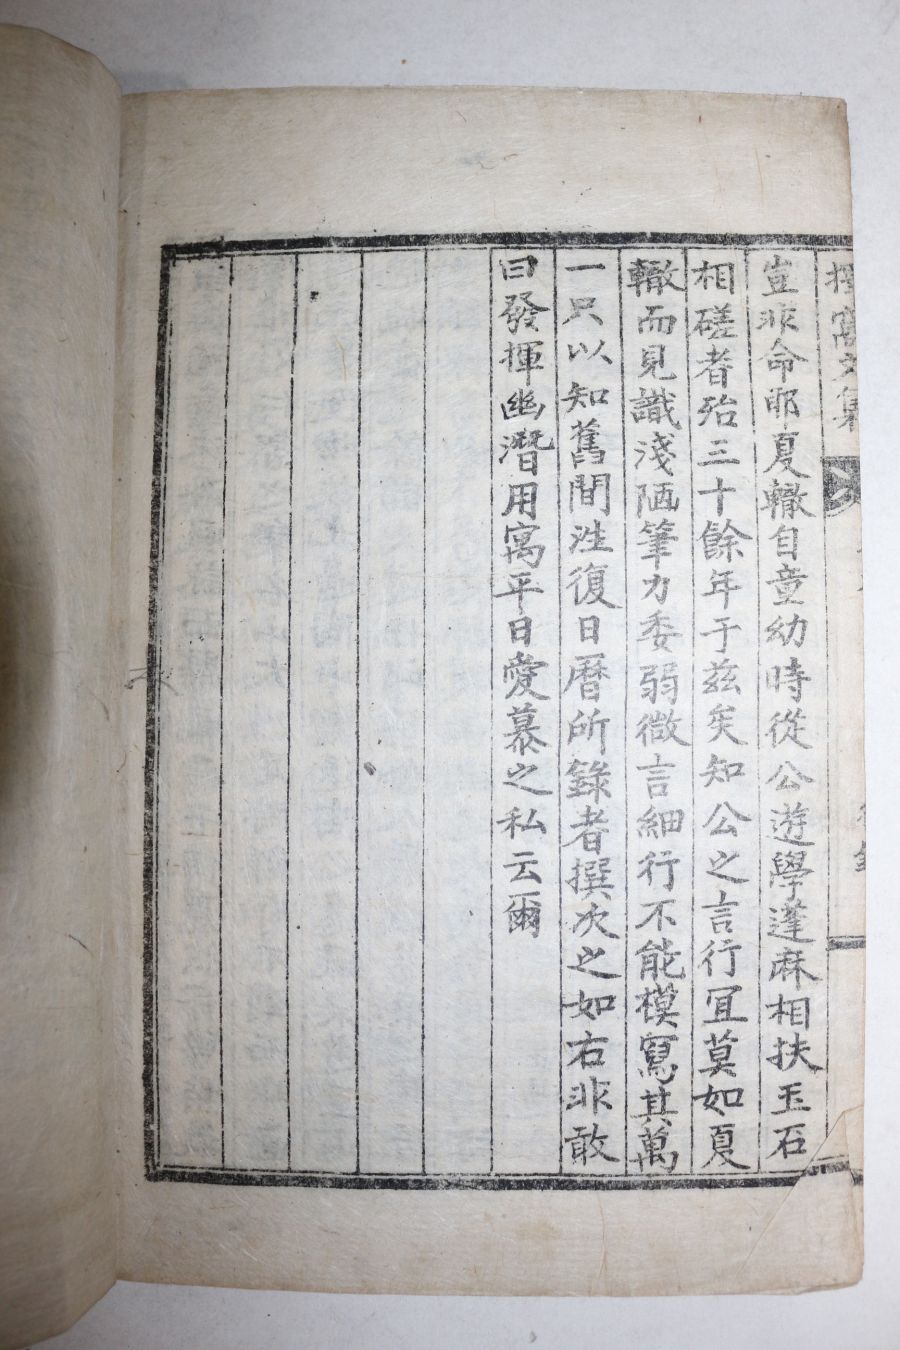 寓文集
豈非命耶夏轍自童幼時從公遊學蓬麻相扶玉石
相磋者殆三十餘年于玆矣知公之言行冝莫如夏
轍而見識淺陋筆力委弱微言細行不能模寫其萬
一只以知舊間徃復日曆所錄者撰次之如右非敢
曰發揮幽潛用寓平日愛慕之私云爾